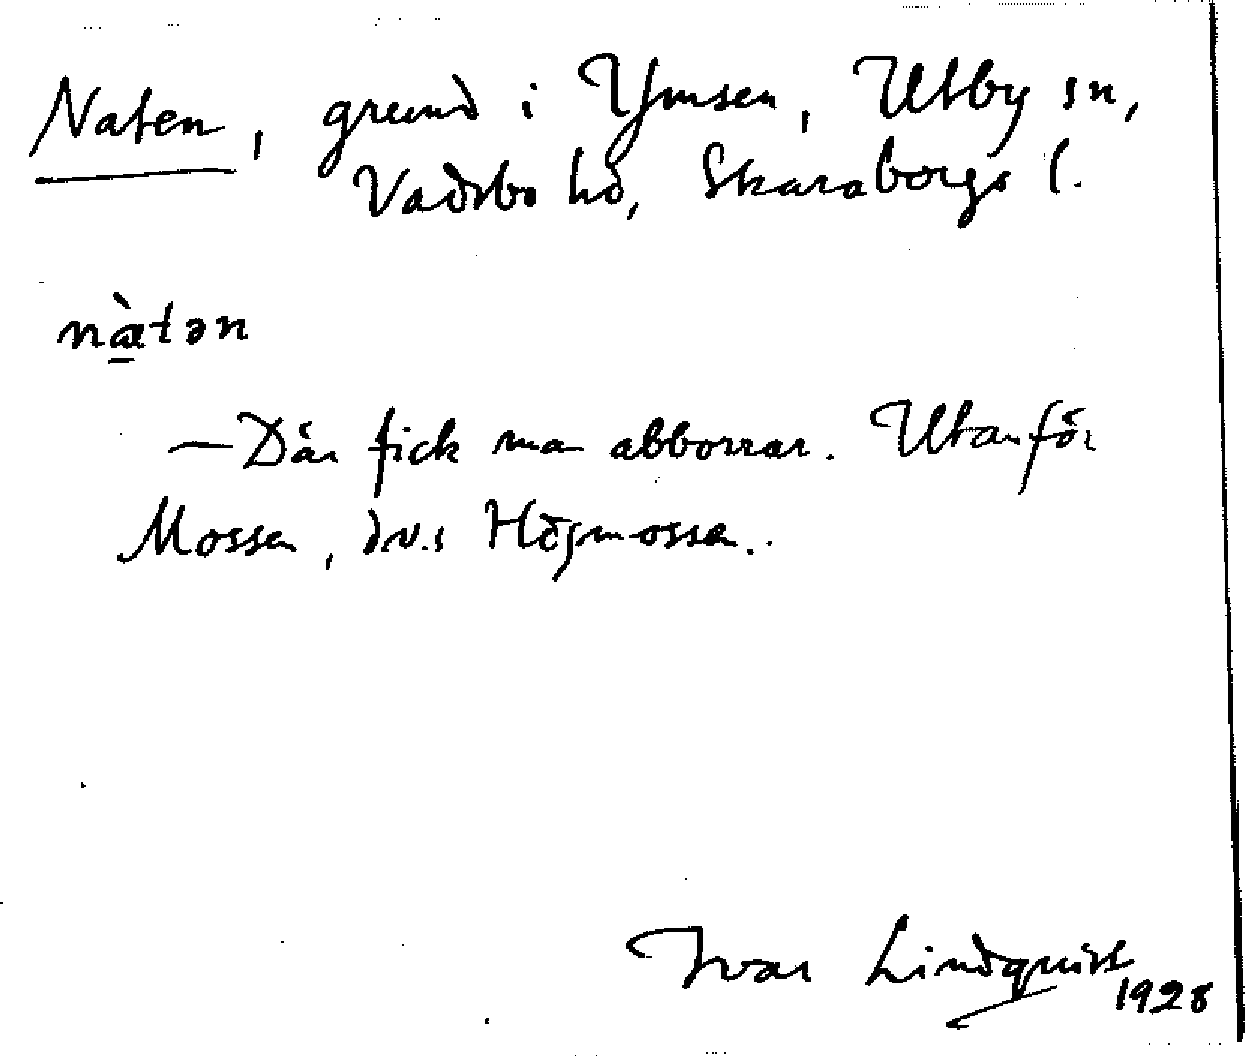 Naten, grund i Ymsen, Utby sn,
Vadsbo hd, Skaraborgs l.
næ̠̀tən
— Där fick man abborrar. Utanför
Mossen, dv.s Högmossen..
Ivar Lindquist
1928